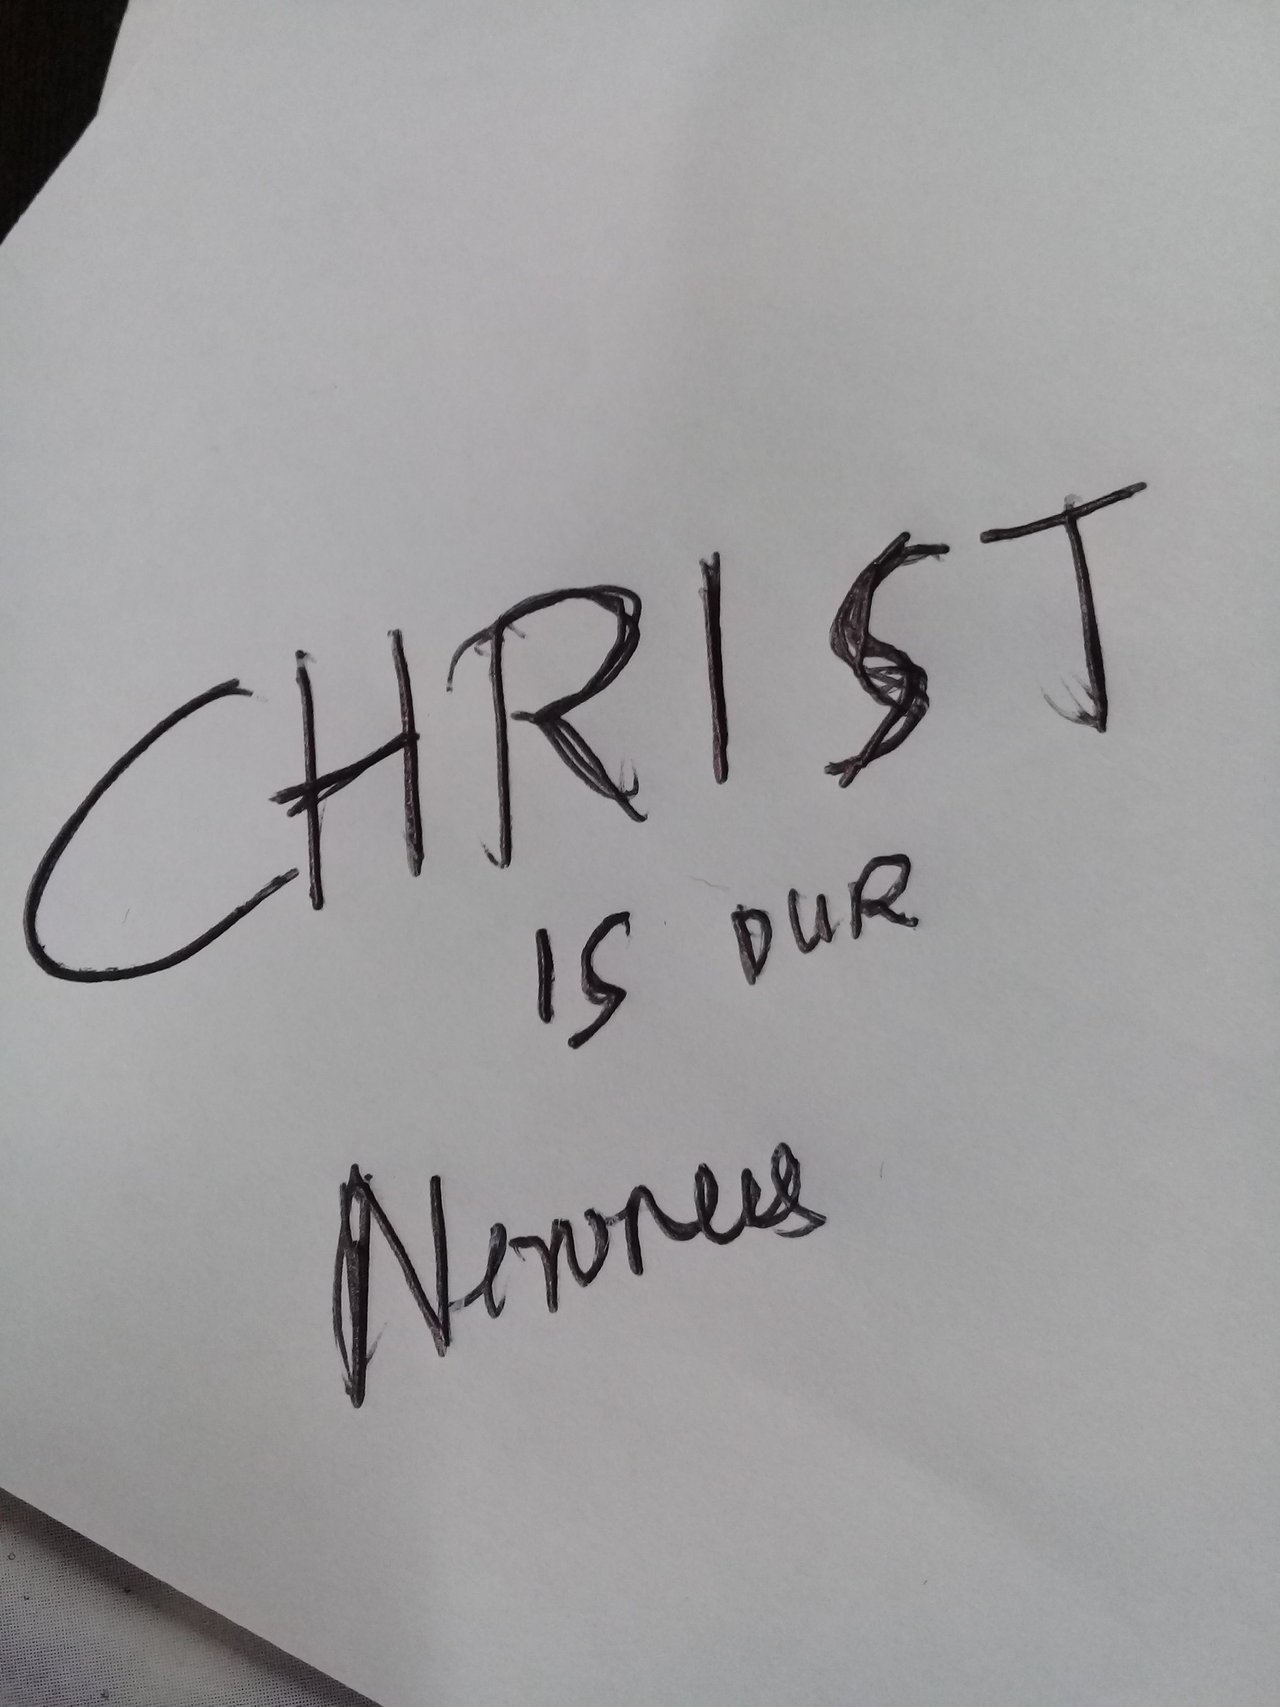 CHRIST
IS OUR
Newness